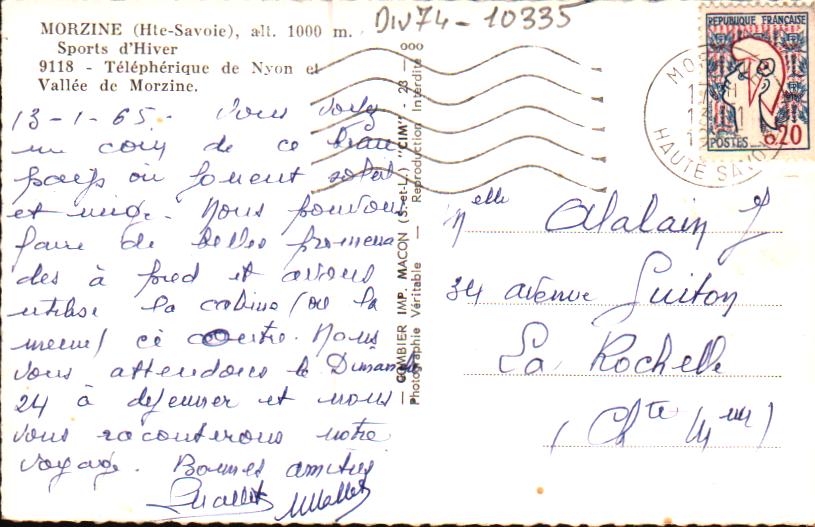 Div74-10335
MORZINE (Hte-Savoie), alt. 1000 m.
Sports d'Hiver
9118 - Téléphérique de Nyon et
Vallée de Morzine.
13-1-65. Vous voilà
un coin de ce beau
pays où jouent soleil
et neige. Nous pouvons
faire de belles promena
des à pied et avons
utilisé la cabine (ou la
meme) ci contre. Nous
vous attendons le Dimanche
24 à dejeuner et nous
vous raconterons notre
voyage. Bonnes amitiés
Mallet
— COMBIER IMP. MACON (S-et-L.) "CIM" - 23 — 000
Photographie Véritable — Reproduction Interdite
REPUBLIQUE FRANÇAISE
POSTES
0,20
HAUTE SAVOIE
Melle Alalain J
34 avenue Guiton
La Rochelle
(Chte Mme)